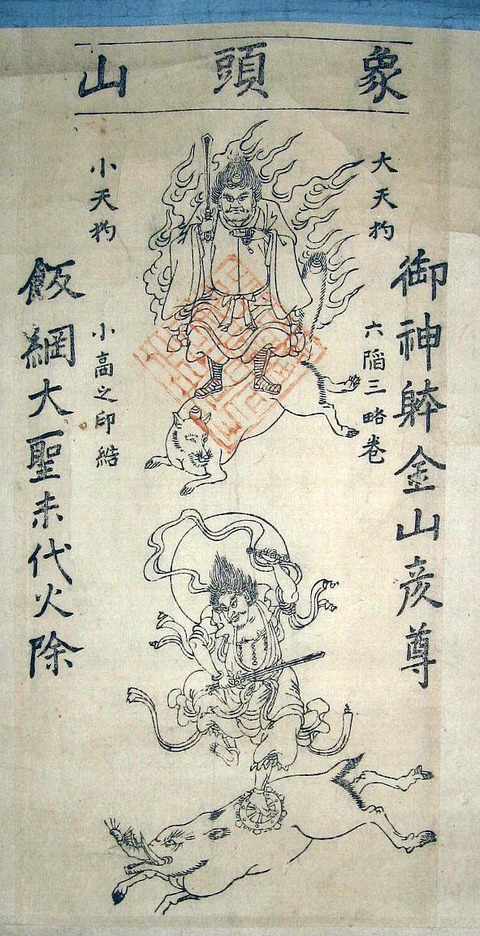 象頭山
御神躰金山彦尊
大天狗
六韜三略巻
小天狗
小高之印結
飯綱大聖末代火除